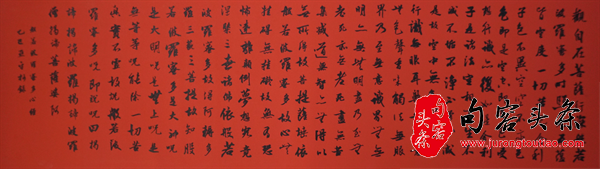 觀自在菩薩行深般若
波羅蜜多時照見五蘊
皆空度一切苦厄舍利
子色不異空空不異色
色即是空空即是色
想行識亦復如是舍利
子是諸法空相
滅不垢不淨不增不減
是故空中無色
行識無眼耳鼻舌身意
無色聲香味觸法無眼
界乃至無意識界無無
明亦無無明盡乃至無
老死亦無老死盡無苦
集滅道無智亦無得以
無所得故菩提薩埵依
般若波羅蜜多故心無
罣礙無罣礙故無有恐
怖遠離顛倒夢想究竟
涅槃三世諸佛依般若
波羅蜜多故得阿耨多
羅三藐三菩提故知般
若波羅蜜多是大神咒
是大明咒是無上咒是
無等等咒能除一切苦
真實不虛故說般若波
羅蜜多咒即說咒曰揭
諦揭諦波羅揭諦波羅
僧揭諦菩提薩婆訶
般若波羅蜜多心經
头条
句容头条
www.jurongtoutiao.com